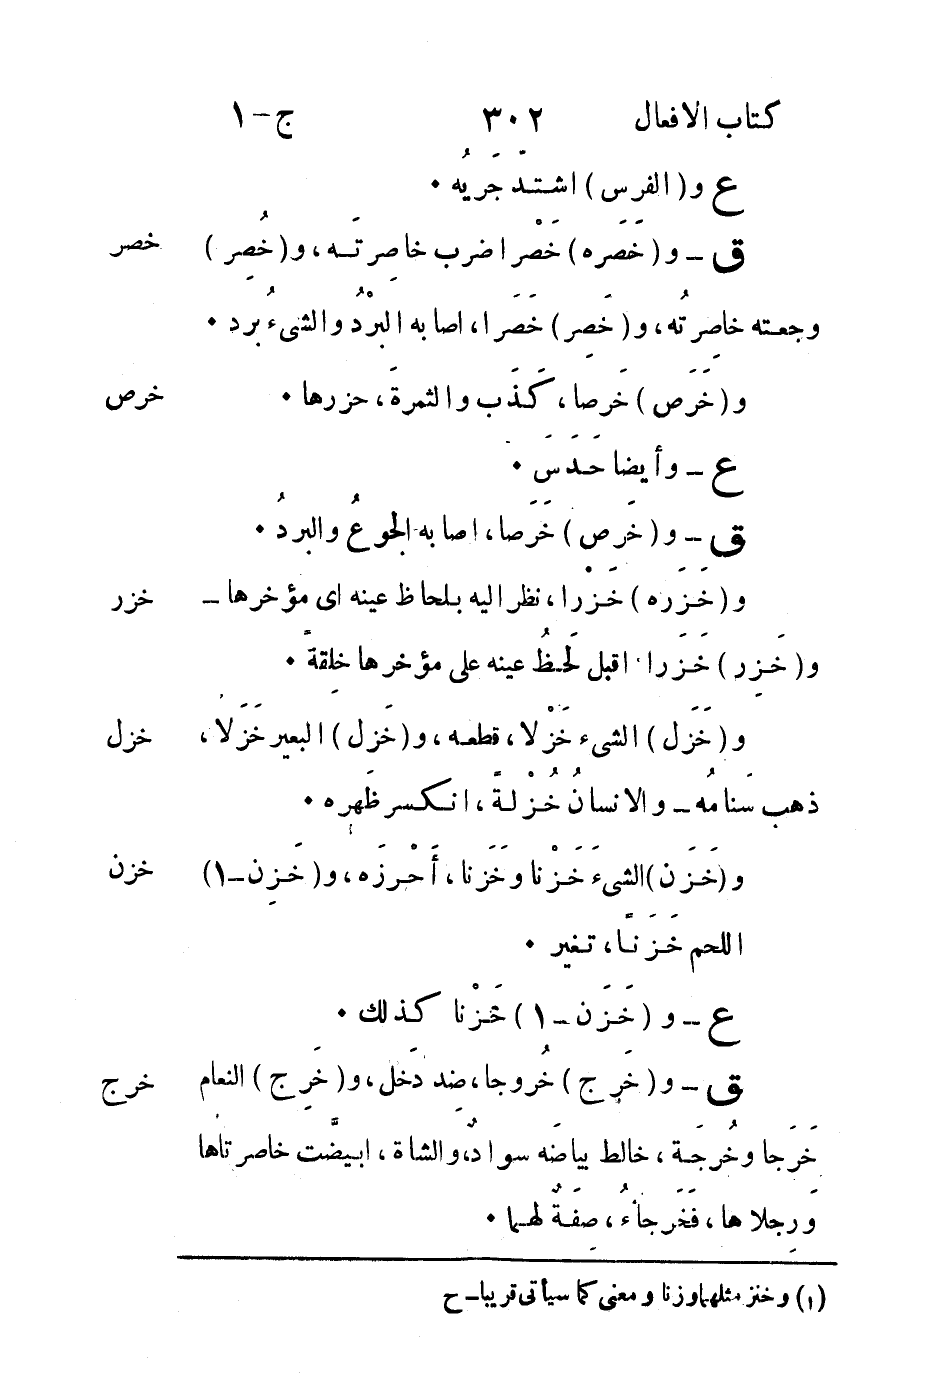 كتاب الافعال ٣٠٢ ج-١
ع و (الفرس) اشتدّ جَريُه ٠
ق ـ و (خَصَره) خَصْرا ضرب خاصِرتَه، و (خُصِر) خصر
وجعته خاصِرتُه، و (خَصِر) خَصَرا، اصابه البَرْدُ والشىءُ بَرد ٠
و (خَرَص) خَرصا، كَذَب والثمرةَ، حزرها ٠ خرص
ع ـ وأيضا حَدَسَ ٠
ق ـ و (خَرِص) خَرَصا، اصابه الجوعُ والبردُ ٠
و (خَزَره) خَزْرا، نظر اليه بلحاظ عينه اى مؤخرها ـ خزر
و (خَزِر) خَزَرا اقبل لَحظُ عينه على مؤخرها خِلقةً ٠
و (خَزَل) الشىء خَزْلا، قطعه، و (خَزِل) البعير خَزَلا، خزل
ذهب سَنامُه ـ والانسانُ خُزْلةً، انكسر ظَهره ٠
و (خَزَن) الشىءَ خَزْنا وخَزَنا، أَحْرزَه، و (خَزِن ـ١) خزن
اللحم خَزَنًا، تغير ٠
ع ـ و (خَزَن ـ١) خَزْنا كذلك ٠
ق ـ و (خَرج) خُروجا، ضد دَخل، و (خَرِج) النعام خرج
خَرَجا وخُرجَة، خالط بياضَه سوادٌ، والشاة، ابيضّت خاصرتاها
وَرِجلاها، فَخَرجاءُ، صِفَةٌ لهما ٠
(١) وخنز مثلهما وزنا ومعنى كما سيأتى قريبا ـ ح